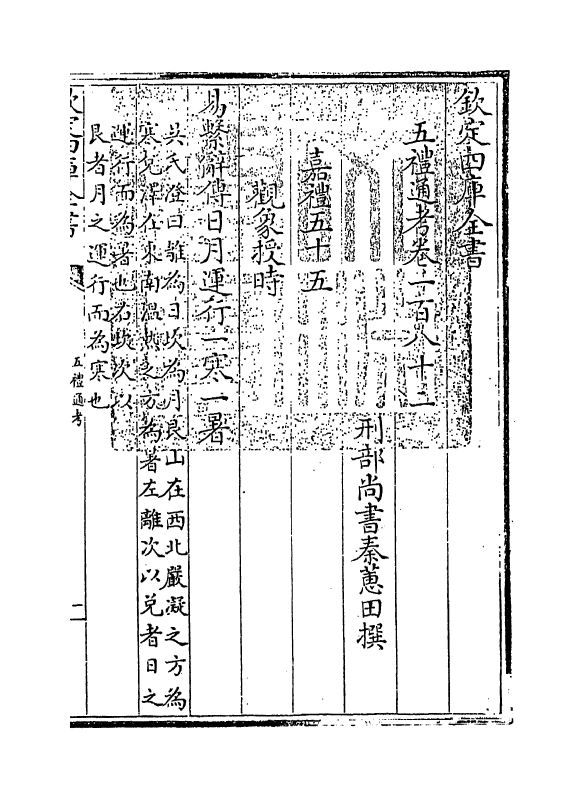 欽定四庫全書
五禮通考卷一百八十二
刑部尚書秦蕙田撰
嘉禮五十五
觀象授時
易繫辭傳日月運行一寒一暑
吳氏澄曰離為日坎為月艮山在西北嚴凝之方為
寒兌澤在東南溫熱之方為暑左離次以兌者日之
運行而為暑也右坎次以
艮者月之運行而為寒也
欽定四庫全書
五禮通考
二